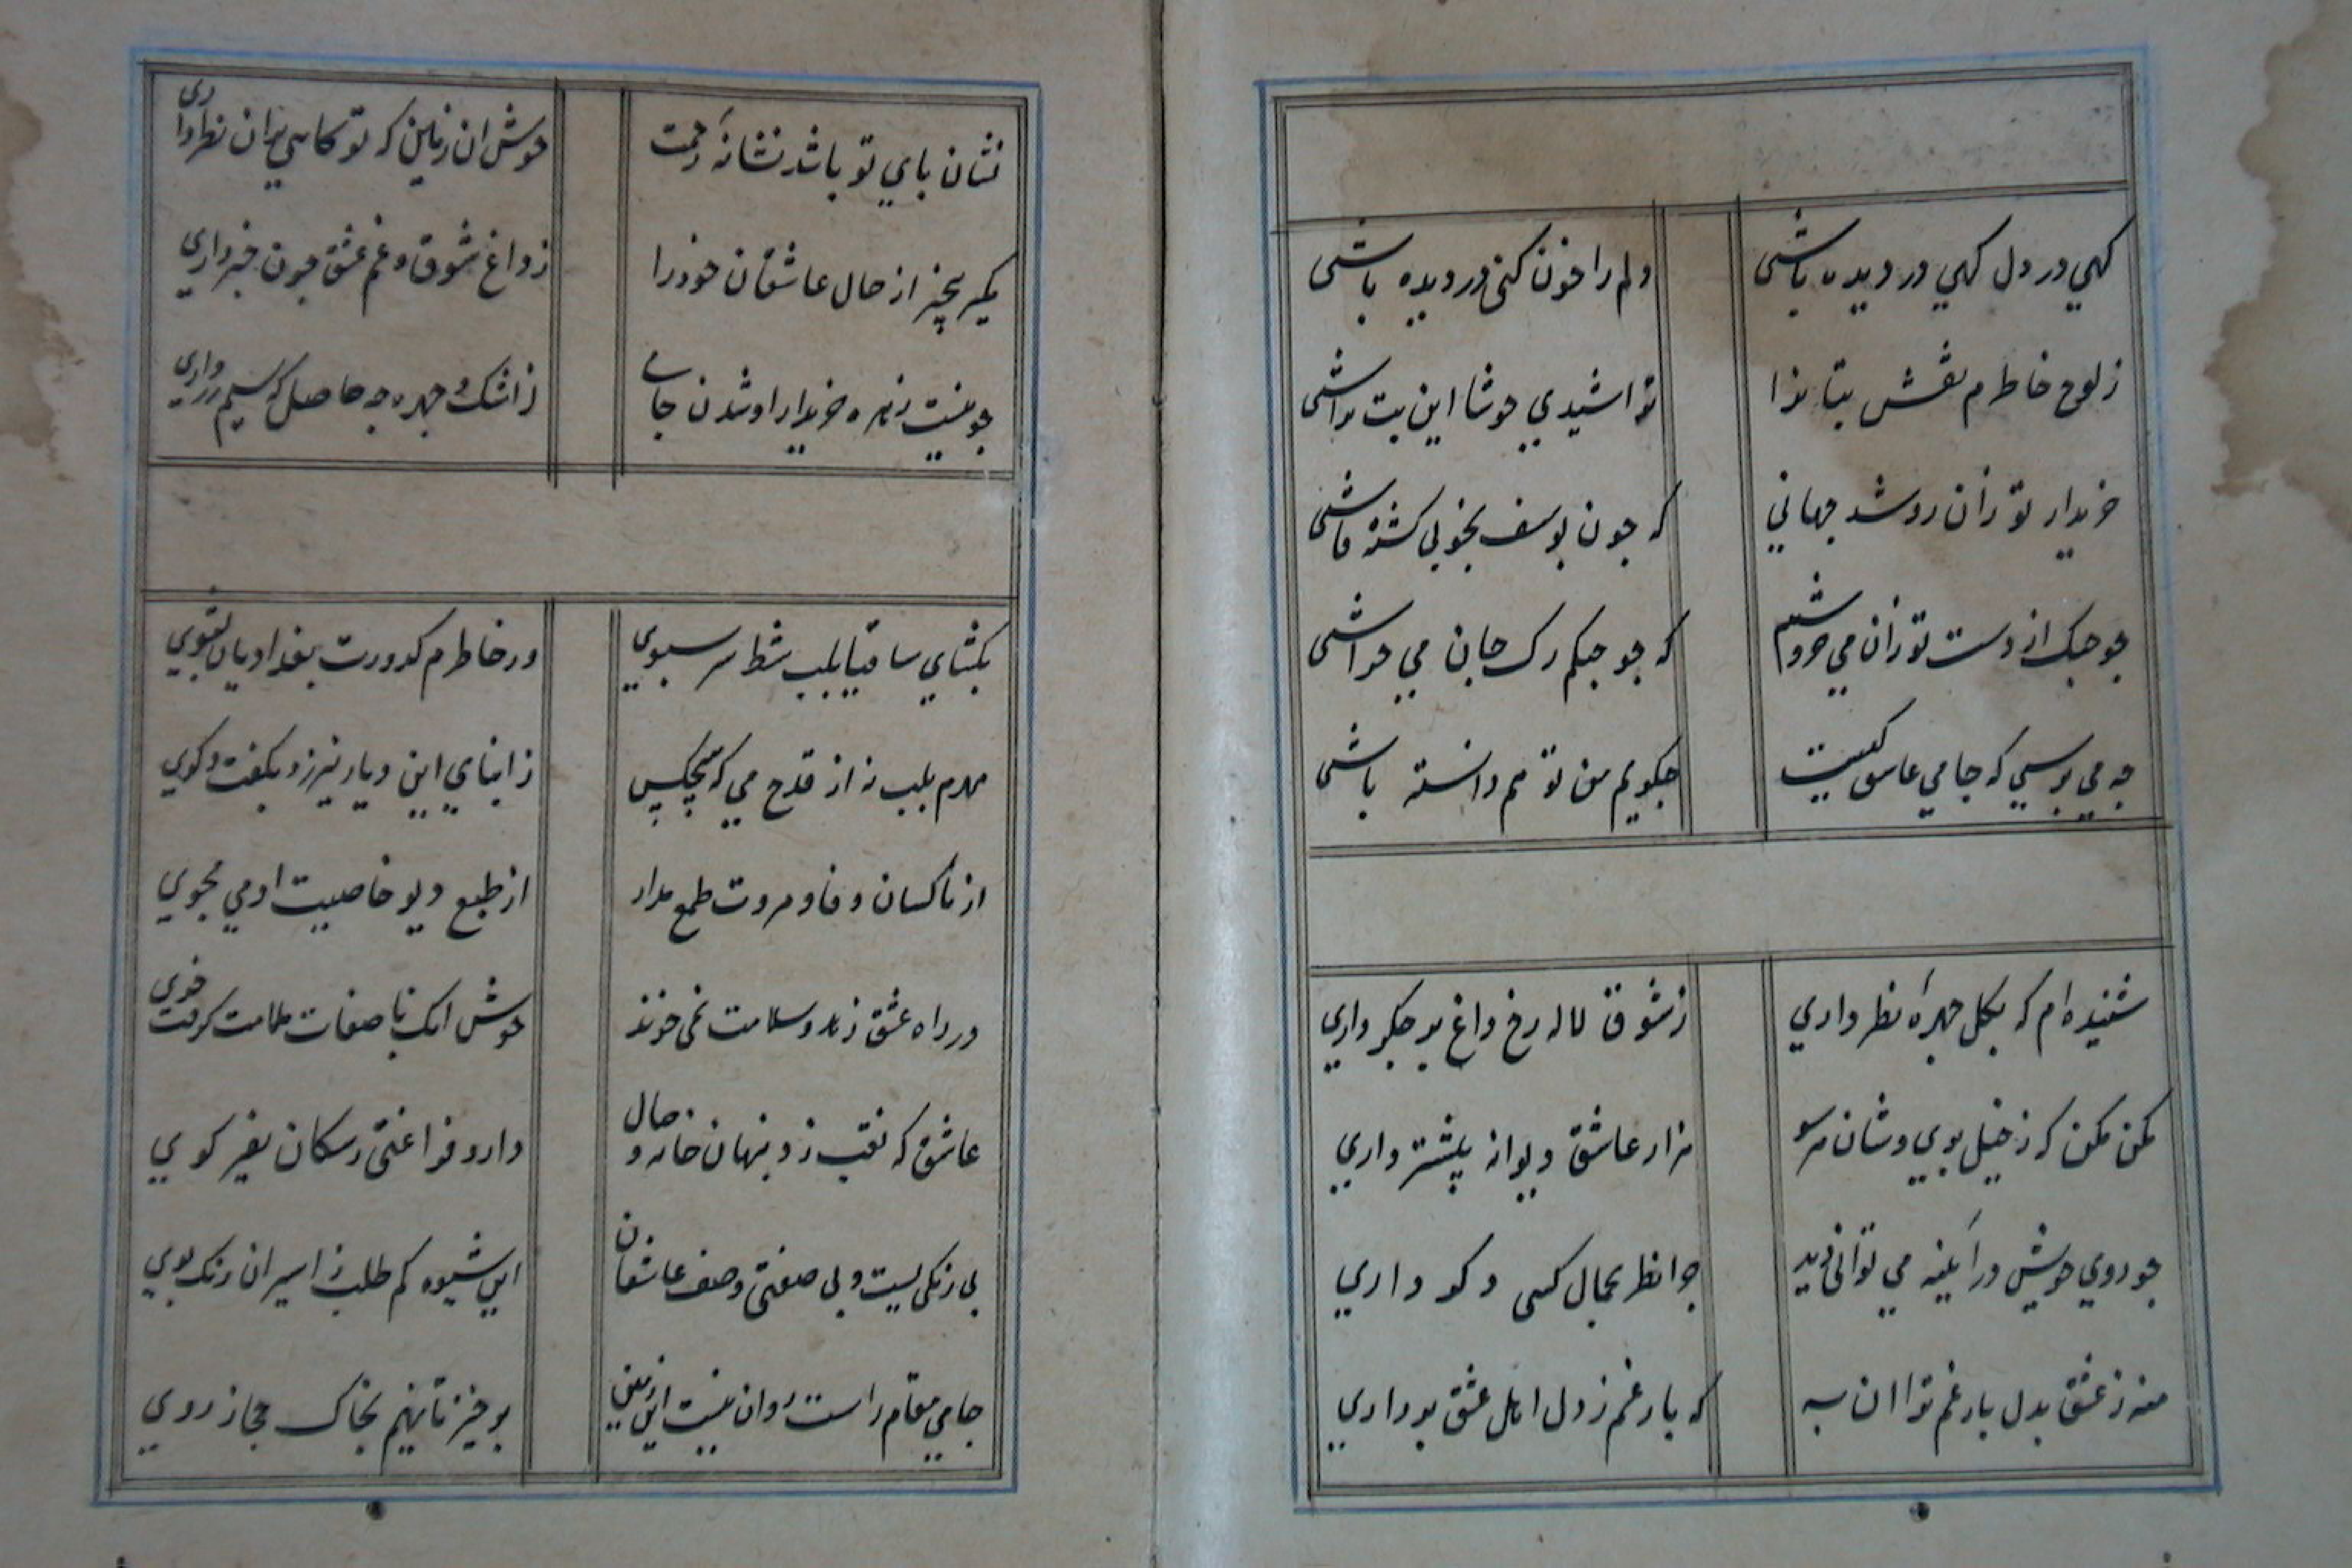 کهي در دل کهي در ديده باشي
دلم را خون کني در ديده باشي
ز لوح خاطرم نقش بتانرا
تراشيدي خوشا اين بت تراشي
خريدار تو زان رو شد جهاني
که جون يوسف بخوبي کشته فاشي
جو جنک از دست تو زان مي خروشيم
که جو جنکم رک جان مي خراشي
جه مي برسي که جامي عاشق کيست
جکويم من تو هم دانسته باشي
شنيده ام که بکل جهرهٔ نظر داري
ز شوق لاله رخ داغ بر جکر داري
مکن مکن که ز خيل بري وشان هر سو
هزار عاشق ديوانه بيشتر داري
جو روي خويش در آينه مي تواني ديد
جرا نظر بجمال کسي دکر داري
منه ز عشق بدل بار غم ترا ان به
که بار غم ز دل اهل عشق برداري
نشان باي تو باشد نشانهٔ رحمت
خوش ان زمين که تو کاهي بران نظر داري
مکير بيخبر از حال عاشقان خود را
ز داغ شوق و غم عشق جون خبر داري
جو نيست زهره خريدار او شدن جامي
ز اشک و جهره جه حاصل که سيم و زر داري
بکشاي ساقيا بلب شط سر سبوي
وز خاطرم کدورت بغداديان بشوي
مهرم بلب نه از قدح مي که هيچکس
ز ابناي اين ديار نيرزد بکفت و کوي
از ناکسان وفا و مروت طمع مدار
از طبع ديو خاصيت ادمي مجوي
در راه عشق زهد و سلامت نمي خرند
خوش انک با صفات ملامت کرفت خوي
عاشق که نقب زد بنهان خانه وصال
دارد فراغتي ز سکان نفير کوي
بي رنکيست و بي صفتي وصف عاشقان
اين شيوه کم طلب ز اسيران رنک بوي
جامي مقام راست روان نيست اين زمين
برخيز تا نهيم بخاک حجاز روي